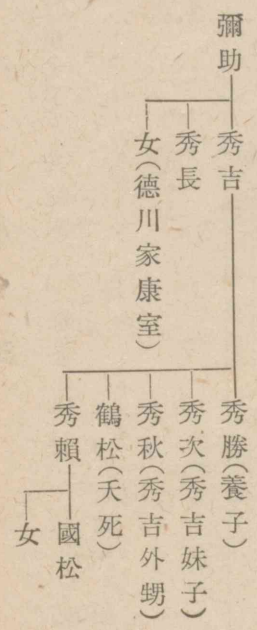 彌助
秀吉
秀長
女(德川家康室)
秀勝(養子)
秀次(秀吉妹子)
秀秋(秀吉外甥)
鶴松(夭死)
秀賴
國松
女